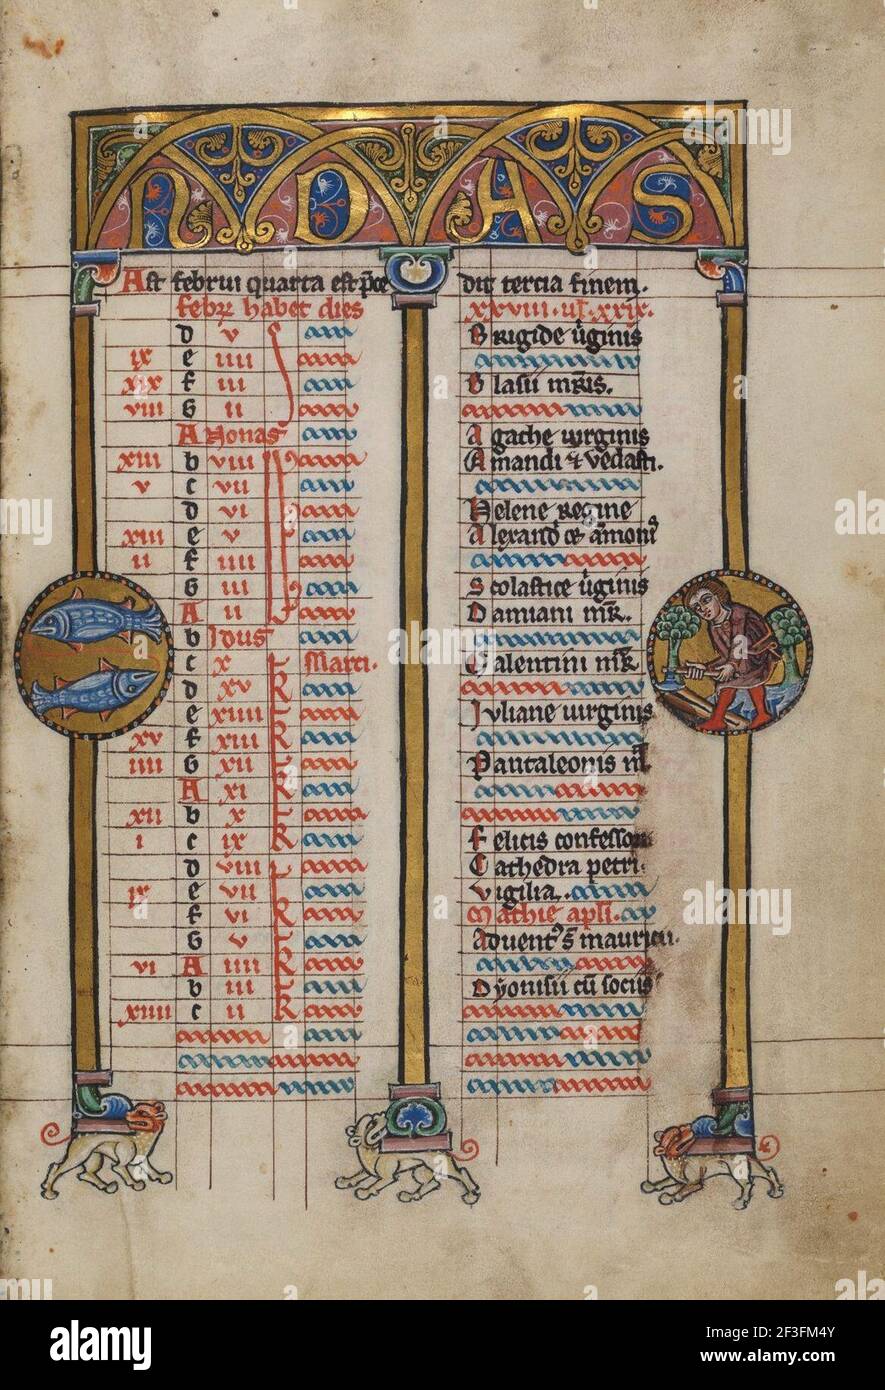 N D A S
Ast februi quarta est p̄ce dit tercia finem.
febr̄ habet dies xxviii. ul̄. xxix.
d v Brigide ūginis
ix e iiii
xix f iii Blasii mr̄is.
viii G ii
A Nonas Agathe uirginis
xiii b viii Amandi & vedasti.
v c vii
d vi Helene Regine
xiii e v
ii f iiii
G iii Scolastice ūginis
A ii Damiani mr̄.
b Idus
c x Marci. Valentini mr̄
d xv k
e xiiii k Iuliane uirginis
xv f xiii k
iiii G xii k Pantaleonis
A xi k
xii b x k
i c ix k Felicis confessor
d viii Cathedra petri.
ix e vii k Vigilia.
f vi k Mathie apli.
G v k
vi A iiii k
b iii k Dyonisii cū sociis
xiiii c ii k
alamy
Image ID: 2F3FM4Y
www.alamy.com